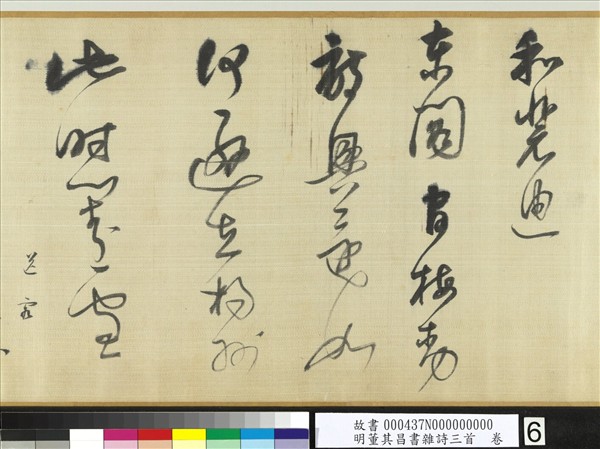 和裴迪
東閣官梅動
詩興還如
何遜在揚州
此時對雪
送客
故書 000437N000000000
明董其昌書雜詩三首 卷
6